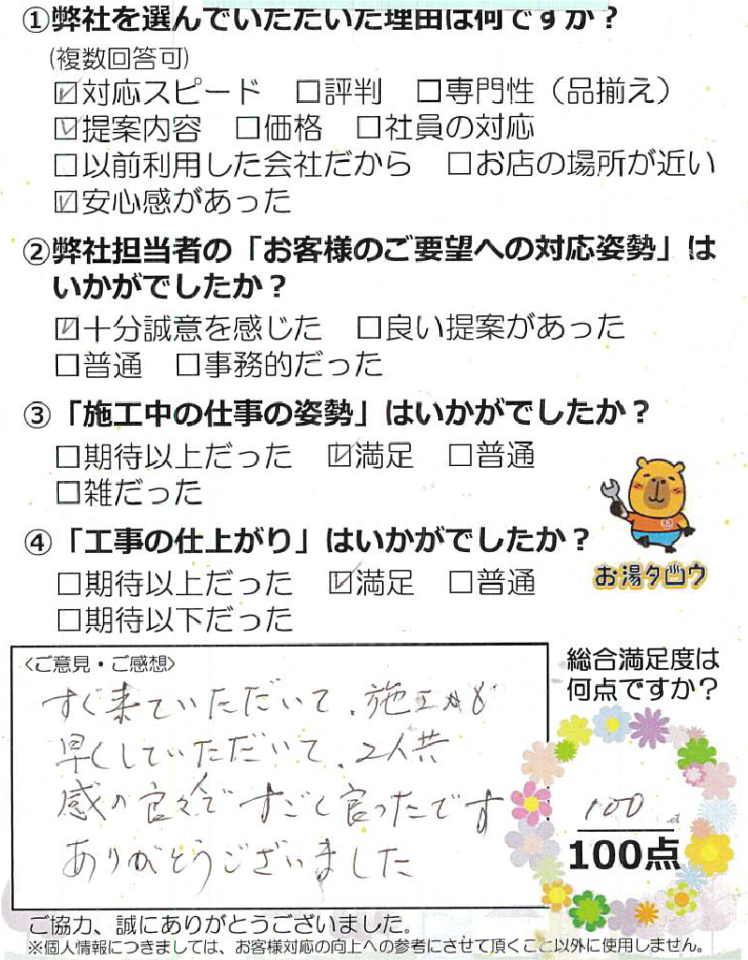 ①弊社を選んでいただいた理由は何ですか？
(複数回答可)
☑対応スピード □評判 □専門性（品揃え）
☑提案内容 □価格 □社員の対応
□以前利用した会社だから □お店の場所が近い
☑安心感があった
②弊社担当者の「お客様のご要望への対応姿勢」は
いかがでしたか？
☑十分誠意を感じた □良い提案があった
□普通 □事務的だった
③「施工中の仕事の姿勢」はいかがでしたか？
□期待以上だった ☑満足 □普通
□雑だった
④「工事の仕上がり」はいかがでしたか？
□期待以上だった ☑満足 □普通
□期待以下だった
お湯タロウ
〈ご意見・ご感想〉
すぐ来ていただいて、施工も
早くしていただいて、2人共
感の良い人で すごく良ったです
ありがとうございました
総合満足度は
何点ですか？
100
100点
ご協力、誠にありがとうございました。
※個人情報につきましては、お客様対応の向上への参考にさせて頂くこと以外に使用しません。